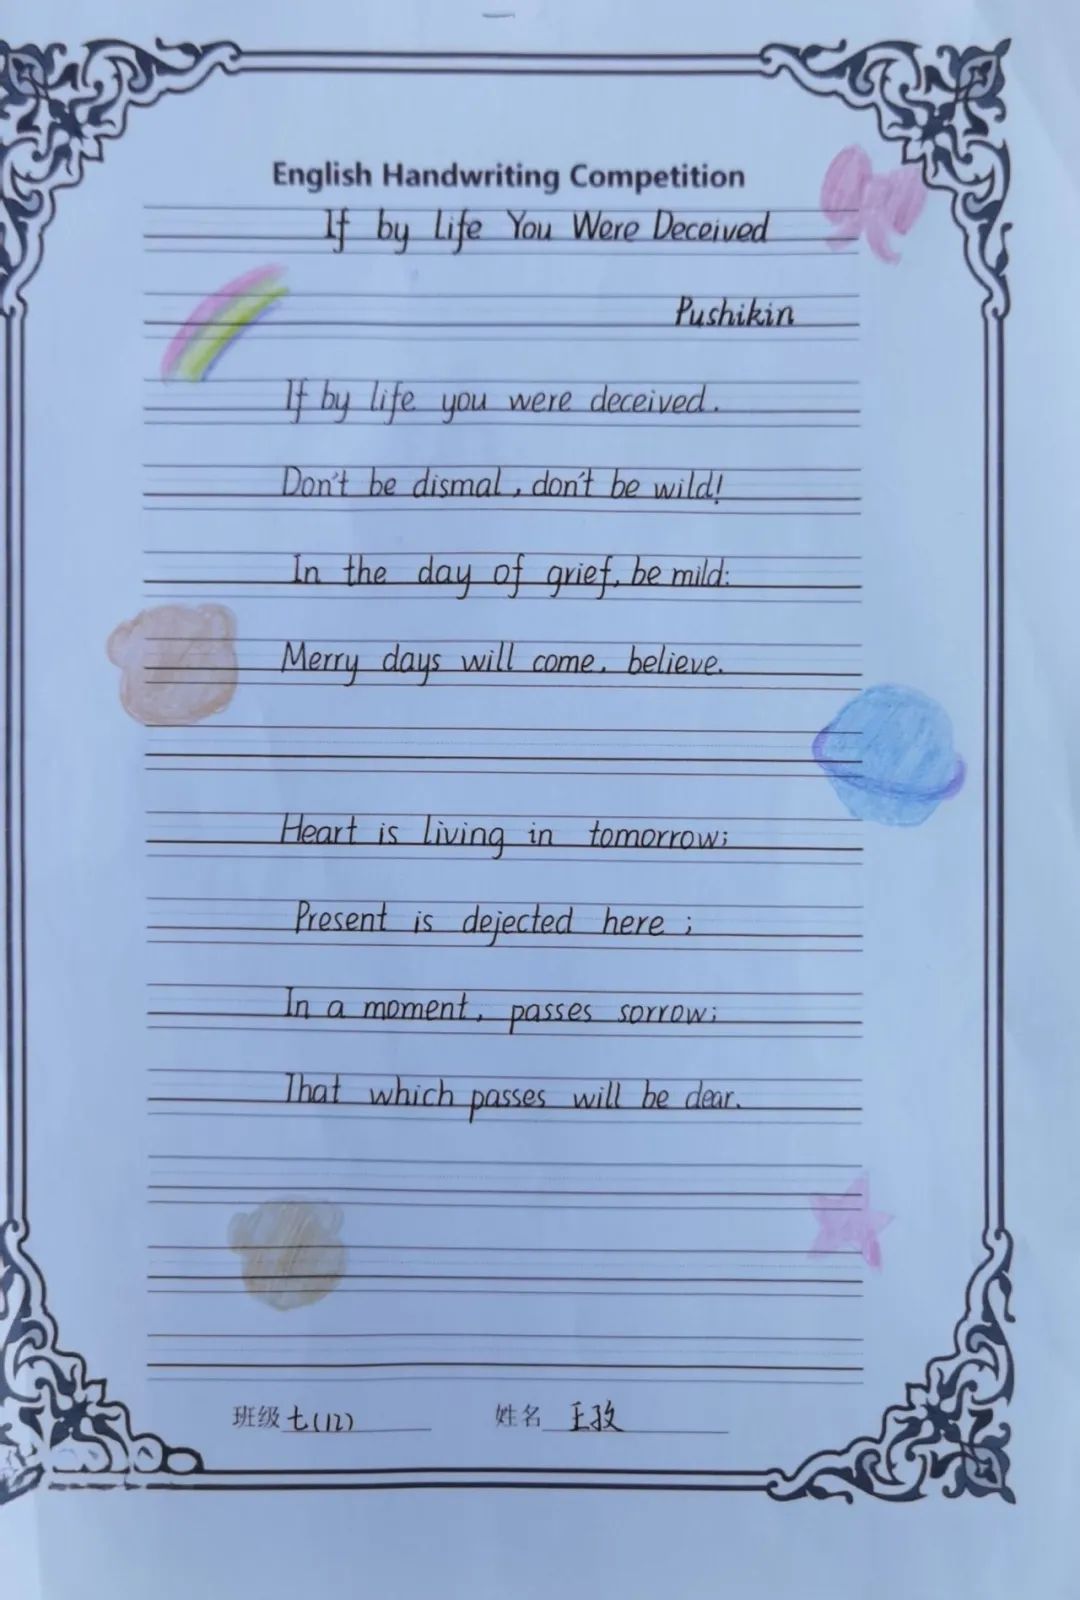 English Handwriting Competition
If by life You Were Deceived
Pushikin
If by life you were deceived.
Don't be dismal, don't be wild!
In the day of grief, be mild:
Merry days will come. believe.
Heart is living in tomorrow;
Present is dejected here;
In a moment, passes sorrow;
That which passes will be dear.
班级 七(12) 姓名 王孜